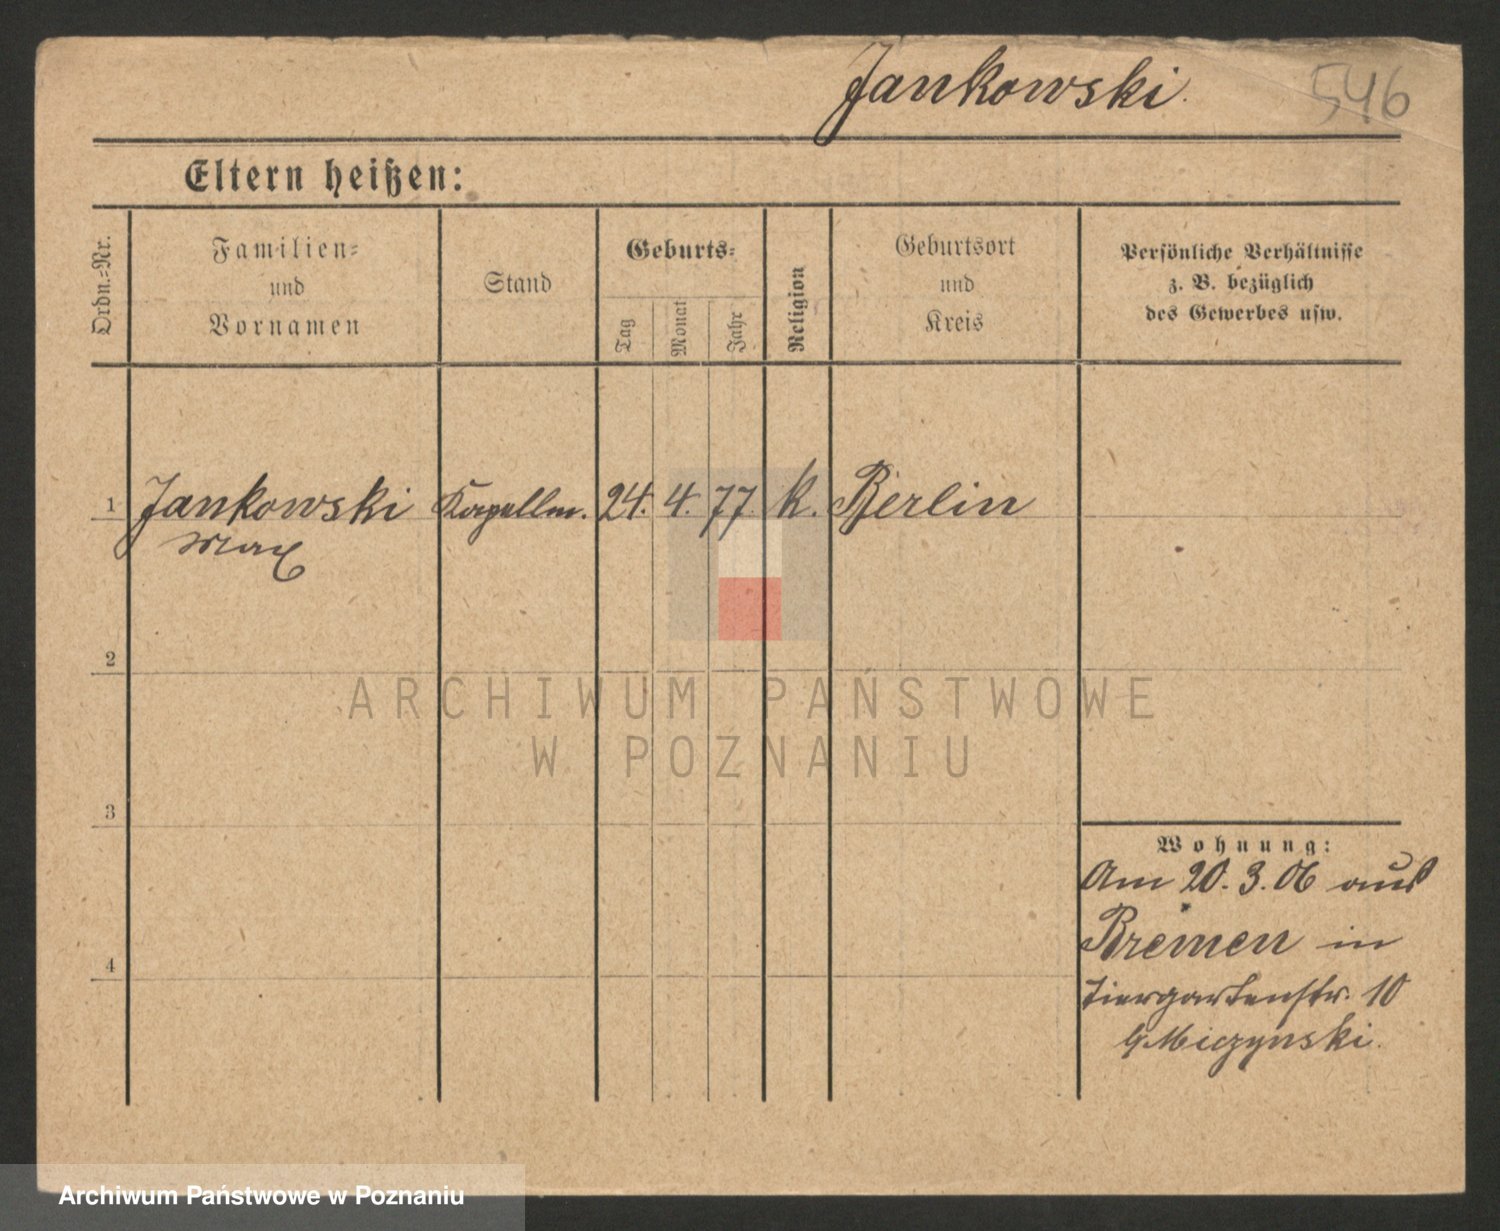 Jankowski.
546
Eltern heißen:
Ordn.-Nr.
Familien-
und
Vornamen
Stand
Geburts-
Tag
Monat
Jahr
Religion
Geburtsort
und
Kreis
Persönliche Verhältnisse
z. B. bezüglich
des Gewerbes usw.
1 Jankowski Kapellm. 24. 4. 77. k. Berlin
Max
2
ARCHIWUM PAŃSTWOWE
W POZNANIU
3
Wohnung:
Am 20.3.06 aus
Bremen in
4
Tiergartenstr. 10
Archiwum Państwowe w Poznaniu